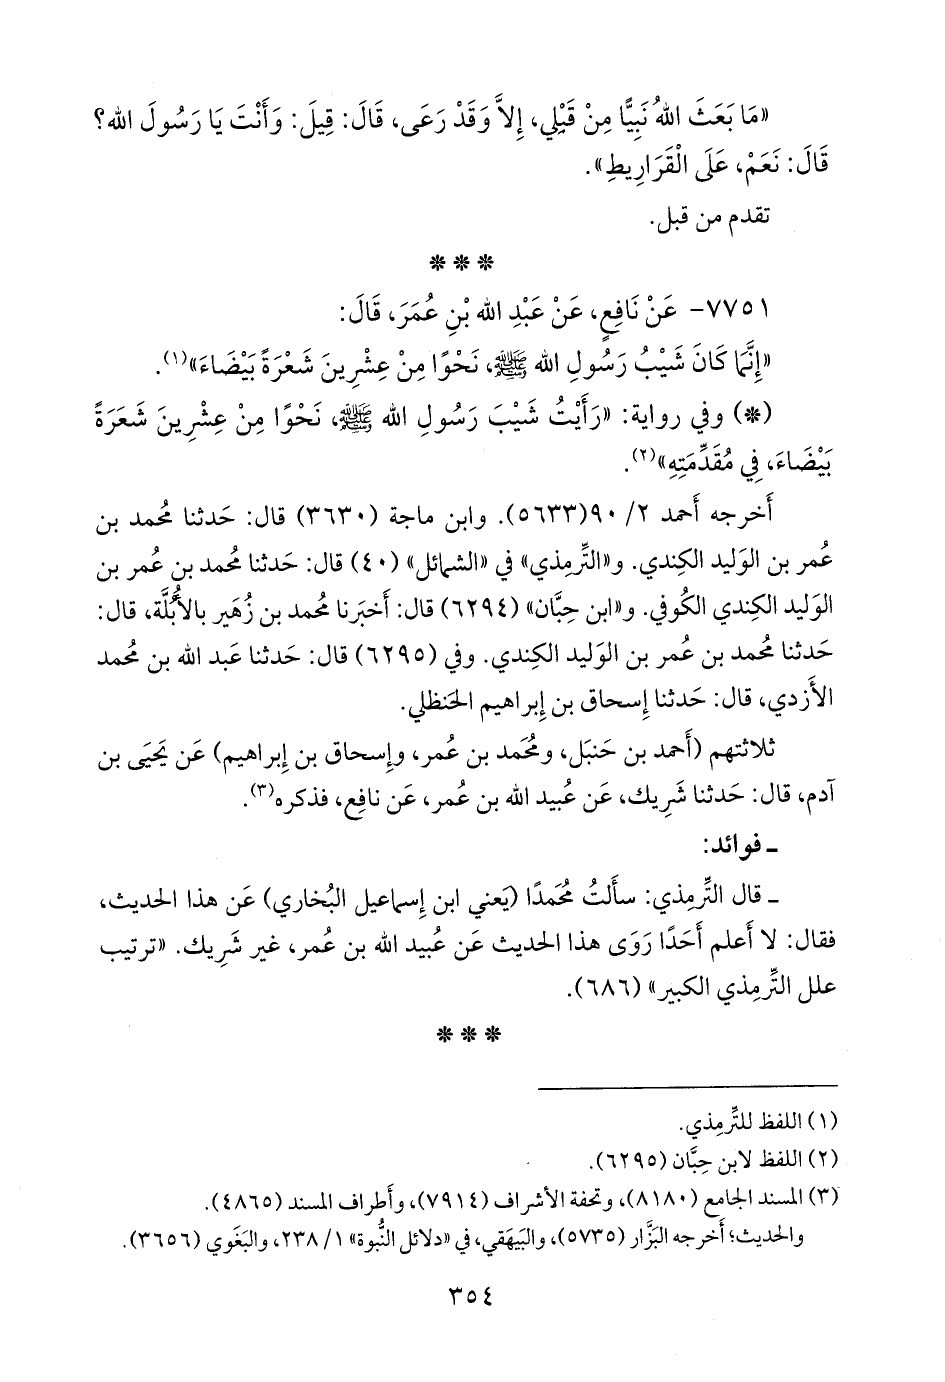 «مَا بَعَثَ اللهُ نَبِيًّا مِنْ قَبْلِي، إِلاَّ وَقَدْ رَعَى، قَالَ: قِيلَ: وَأَنْتَ يَا رَسُولَ الله؟
قَالَ: نَعَمْ، عَلَى الْقَرَارِيطِ».
تقدم من قبل.
* * *
٧٧٥١- عَنْ نَافِعٍ، عَنْ عَبْدِ الله بْنِ عُمَرَ، قَالَ:
«إِنَّمَا كَانَ شَيْبُ رَسُولِ الله ﷺ، نَحْوًا مِنْ عِشْرِينَ شَعْرَةً بَيْضَاءَ»(١).
(*) وفي رواية: «رَأَيْتُ شَيْبَ رَسُولِ الله ﷺ، نَحْوًا مِنْ عِشْرِينَ شَعَرَةً
بَيْضَاءَ، فِي مُقَدِّمَتِهِ»(٢).
أَخرجه أَحمد ٢/ ٩٠(٥٦٣٣). وابن ماجة (٣٦٣٠) قال: حَدثنا مُحمد بن
عُمر بن الوَليد الكِندي. و«التِّرمِذي» في «الشمائل» (٤٠) قال: حَدثنا مُحمد بن عمر بن
الوَليد الكِندي الكُوفي. و«ابن حِبَّان» (٦٢٩٤) قال: أَخبَرنا مُحمد بن زُهَير بالأُبُلَّة، قال:
حَدثنا مُحمد بن عُمر بن الوَليد الكِندي. وفي (٦٢٩٥) قال: حَدثنا عَبد الله بن مُحمد
الأَزدي، قال: حَدثنا إِسحاق بن إِبراهيم الحَنظلي.
ثلاثتهم (أَحمد بن حَنبَل، ومُحمد بن عُمر، وإِسحاق بن إِبراهيم) عَن يَحيَى بن
آدم، قال: حَدثنا شَريك، عَن عُبيد الله بن عُمر، عَن نافِع، فذكره(٣).
ـ فوائد:
ـ قال التِّرمِذي: سأَلتُ مُحَمدًا (يَعني ابن إِسماعيل البُخاري) عَن هذا الحَديث،
فقال: لا أَعلم أَحَدًا رَوَى هذا الحديث عَن عُبيد الله بن عُمر، غير شَريك. «ترتيب
علل التِّرمِذي الكبير» (٦٨٦).
* * *
(١) اللفظ للتِّرمِذي.
(٢) اللفظ لابن حِبَّان (٦٢٩٥).
(٣) المسند الجامع (٨١٨٠)، وتحفة الأشراف (٧٩١٤)، وأَطراف المسند (٤٨٦٥).
والحديث؛ أَخرجه البَزَّار (٥٧٣٥)، والبَيهَقي، في «دلائل النُّبوة» ١/ ٢٣٨، والبَغَوي (٣٦٥٦).
٣٥٤